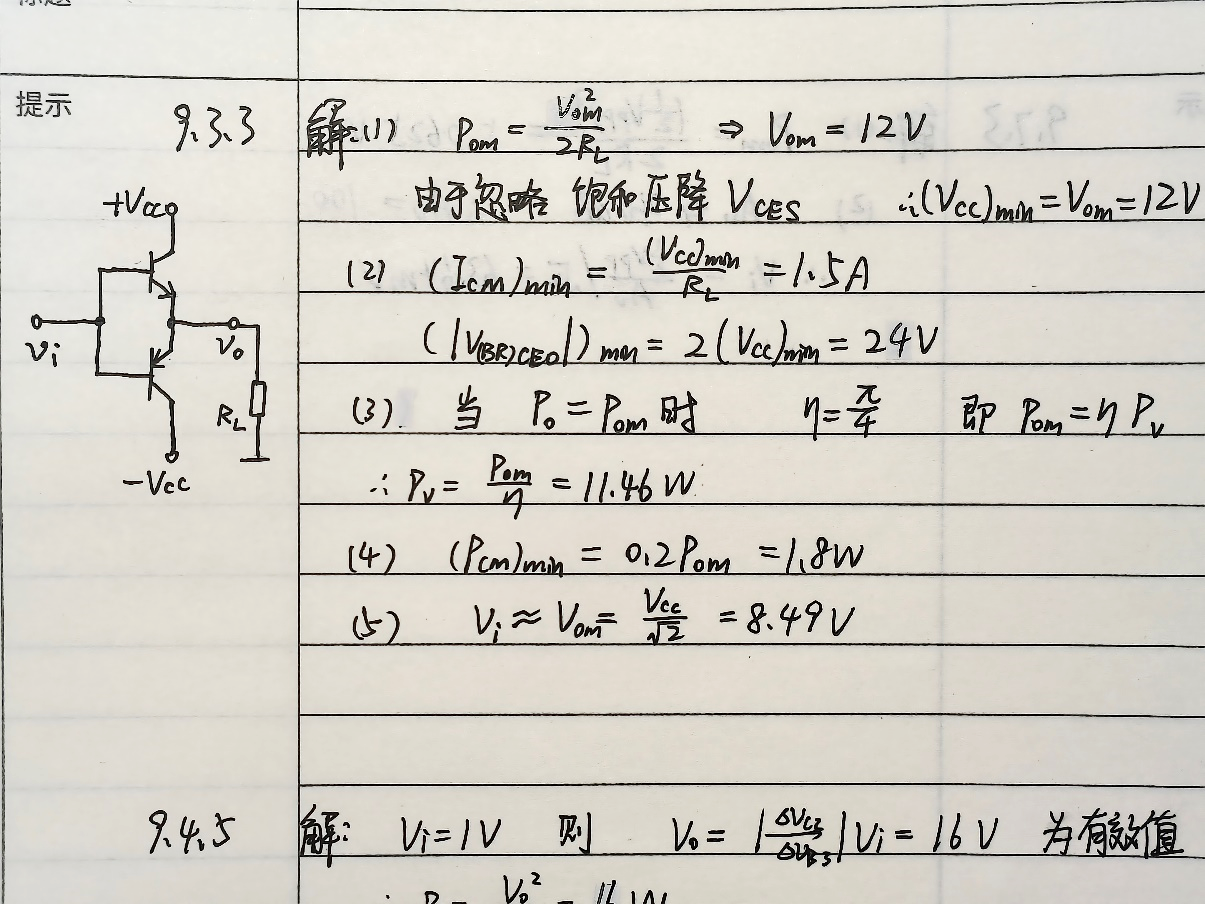 提示
9.3.3 解:(1) Pom = Vom²/2RL ⇒ Vom = 12V
由于忽略 饱和压降 VCES ∴(Vcc)min = Vom = 12V
+Vcc
(2) (ICM)min = (Vcc)min/RL = 1.5A
vi vo
(|V(BR)CEO|)min = 2(Vcc)min = 24V
RL
(3) 当 Po = Pom 时 η = π/4 即 Pom = η Pv
-Vcc
∴ Pv = Pom/η = 11.46 W
(4) (PCM)min = 0.2Pom = 1.8W
(5) Vi ≈ Vom = Vcc/√2 = 8.49V
9.4.5 解: Vi = 1V 则 Vo = |ΔVC3/ΔVB3| Vi = 16V 为有效值